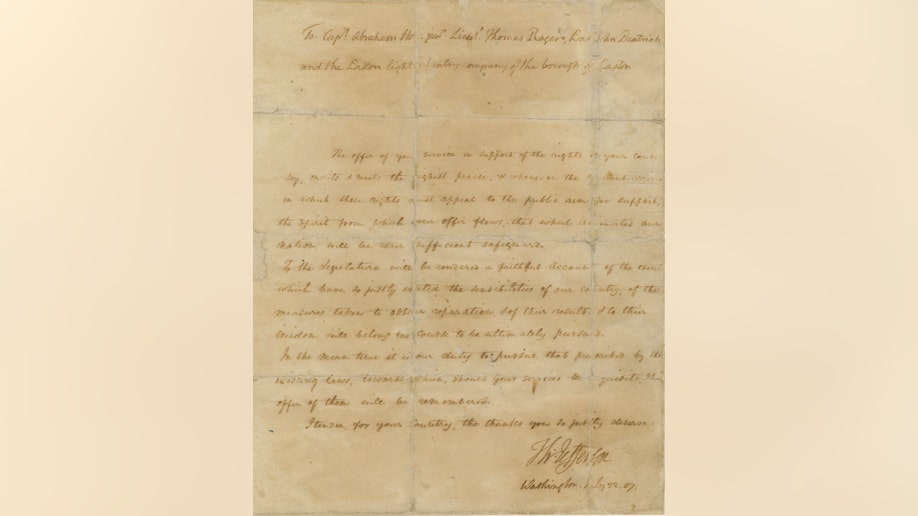 To Capt. Abraham Ho Lieut. Thomas Rogers, Dietrich
and the Easton light infantry company of the borough of Easton
The offer of your service in support of the rights of your coun-
try, merits & meets the highest praise, & whenever the arrive
in which these rights must appeal to the public arm for support,
the spirit from which your offer flows, that which animates our
nation, will be their sufficient safeguard.
To the legislature will be rendered a faithful account of the
which have so justly excited the sensibilities of our country, of the
measures taken to obtain reparation & of their result, & to their
wisdom will belong the course to be ultimately pursued.
In the mean time it is our duty to pursue that prescribed by the
existing laws, towards which, should your services be requisite, this
offer of them will be remembered.
I tender, for your country, the thanks you so justly deserve.
Th: Jefferson
Washington. July 22. 07.